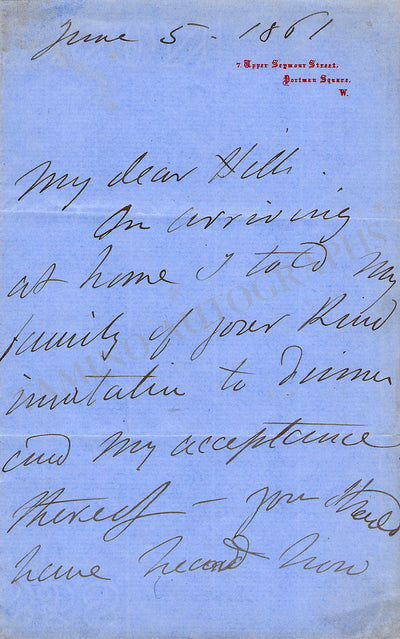 June 5 - 1861
7 Upper Seymour Street.
Portman Square.
W.
My dear Hills.
On arriving
at home I told my
family of your kind
invitation to dinner
and my acceptance
thereof – you should
have heard how
TAMINO AUTOGRAPHS